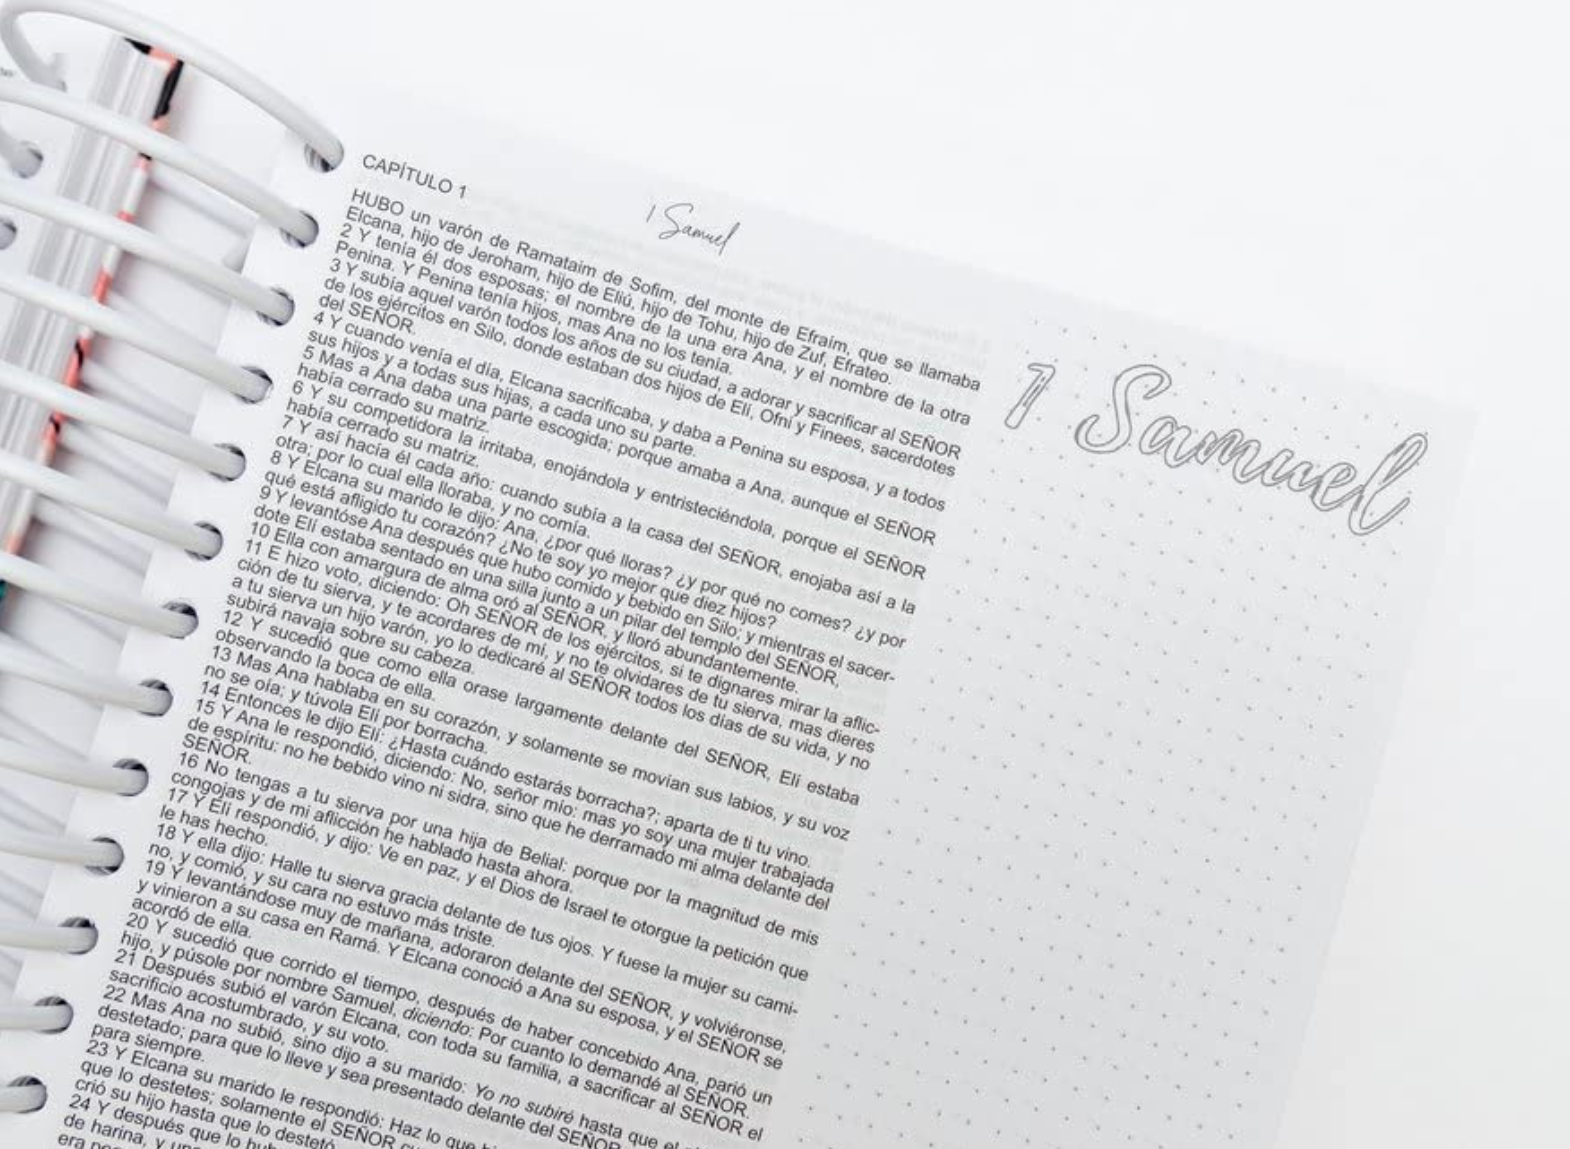 CAPÍTULO 1
1 Samuel
HUBO un varón de Ramataim de Sofim, del monte de Efraím, que se llamaba
Elcana, hijo de Jeroham, hijo de Eliú, hijo de Tohu, hijo de Zuf, Efrateo.
2 Y tenía él dos esposas; el nombre de la una era Ana, y el nombre de la otra
Penina. Y Penina tenía hijos, mas Ana no los tenía.
3 Y subía aquel varón todos los años de su ciudad, a adorar y sacrificar al SEÑOR
de los ejércitos en Silo, donde estaban dos hijos de Elí, Ofni y Finees, sacerdotes
del SEÑOR.
4 Y cuando venía el día, Elcana sacrificaba, y daba a Penina su esposa, y a todos
sus hijos y a todas sus hijas, a cada uno su parte.
5 Mas a Ana daba una parte escogida; porque amaba a Ana, aunque el SEÑOR
había cerrado su matriz.
6 Y su competidora la irritaba, enojándola y entristeciéndola, porque el SEÑOR
había cerrado su matriz.
7 Y así hacía él cada año: cuando subía a la casa del SEÑOR, enojaba así a la
otra; por lo cual ella lloraba, y no comía.
8 Y Elcana su marido le dijo: Ana, ¿por qué lloras? ¿y por qué no comes? ¿y por
qué está afligido tu corazón? ¿No te soy yo mejor que diez hijos?
9 Y levantóse Ana después que hubo comido y bebido en Silo; y mientras el sacer-
dote Elí estaba sentado en una silla junto a un pilar del templo del SEÑOR,
10 Ella con amargura de alma oró al SEÑOR, y lloró abundantemente.
11 E hizo voto, diciendo: Oh SEÑOR de los ejércitos, si te dignares mirar la aflic-
ción de tu sierva, y te acordares de mí, y no te olvidares de tu sierva, mas dieres
a tu sierva un hijo varón, yo lo dedicaré al SEÑOR todos los días de su vida, y no
subirá navaja sobre su cabeza.
12 Y sucedió que como ella orase largamente delante del SEÑOR, Elí estaba
observando la boca de ella.
13 Mas Ana hablaba en su corazón, y solamente se movían sus labios, y su voz
no se oía; y túvola Elí por borracha.
14 Entonces le dijo Elí: ¿Hasta cuándo estarás borracha?; aparta de ti tu vino.
15 Y Ana le respondió, diciendo: No, señor mío: mas yo soy una mujer trabajada
de espíritu: no he bebido vino ni sidra, sino que he derramado mi alma delante del
SEÑOR.
16 No tengas a tu sierva por una hija de Belial: porque por la magnitud de mis
congojas y de mi aflicción he hablado hasta ahora.
17 Y Elí respondió, y dijo: Ve en paz, y el Dios de Israel te otorgue la petición que
le has hecho.
18 Y ella dijo: Halle tu sierva gracia delante de tus ojos. Y fuese la mujer su cami-
no, y comió, y su cara no estuvo más triste.
19 Y levantándose muy de mañana, adoraron delante del SEÑOR, y volviéronse,
y vinieron a su casa en Ramá. Y Elcana conoció a Ana su esposa, y el SEÑOR se
acordó de ella.
20 Y sucedió que corrido el tiempo, después de haber concebido Ana, parió un
hijo, y púsole por nombre Samuel, diciendo: Por cuanto lo demandé al SEÑOR.
21 Después subió el varón Elcana, con toda su familia, a sacrificar al SEÑOR el
sacrificio acostumbrado, y su voto.
22 Mas Ana no subió, sino dijo a su marido: Yo no subiré hasta que el
destetado; para que lo lleve y sea presentado delante del SEÑOR
para siempre.
23 Y Elcana su marido le respondió: Haz lo que
que lo destetes; solamente el SEÑOR
crió su hijo hasta que lo destetó.
24 Y después que lo
de harina, y
era
1 Samuel